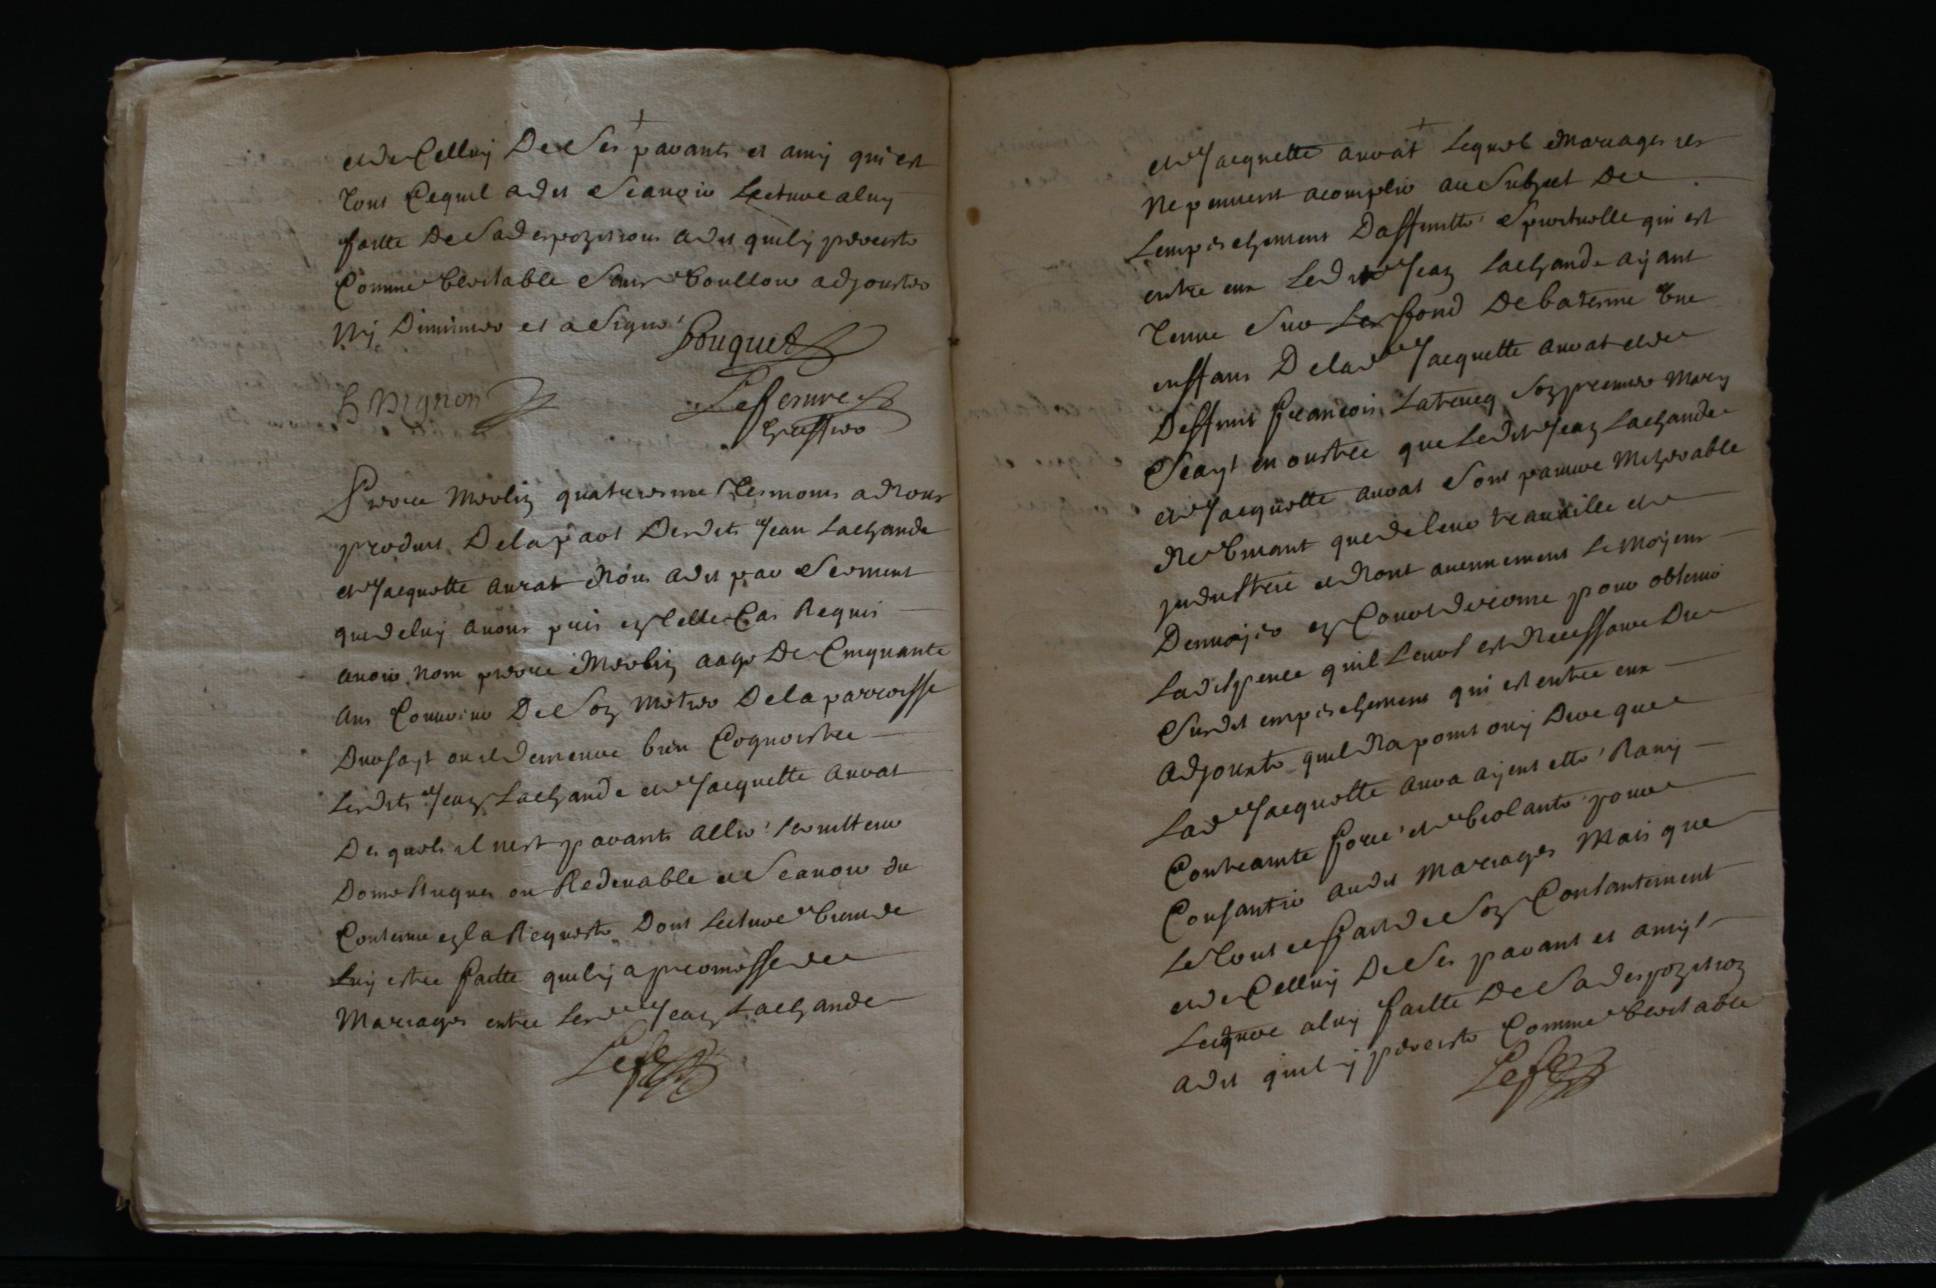 et de Celluy De Ses parants et amy qui est
Tout Cequil a dit Scavoir Lecture a luy
faitte De Sa depozitions a dit quil y perciste
Comme Veritable Sans Voulloir adjouster
Ny Diminuer et a Signé
Pouquet
Mignon
Lefebure
Greffier
Pierre Merlin quatriesme Tesmoins a Nous
produit De la part Desdits Jean Lachande
et Jacquette aurat Nous a dit par Serment
que de luy avons pris en telle Cas Requis
avoir nom pierre Merlin aage De Cinquante
ans Couvreur De Son metier De la parroisse
ou il demeure bien Cognoistre
Lesdits Jean Lachande et Jacquette auvat
Desquels il nest parants allié serviteur
Domestiques ou Redevable et Scavoir du
Contenu en la Requeste Dont Lecture Vient de
Luy estre faitte quil y a promesse de
Mariages entre Led Jean Lachande
Lefe
et Jacquette auvat Lequel Mariages ils
Ne peuvent acomplir au Subject De
Lempeschement Daffinitté Spirituelle qui est
entre eux Ledit Jean Lachande ayant
Tenue Sur Les fond De batesme Une
enffans De lad Jacquette auvat et de
Deffunt françois Latoucq Son premier Mary
Scayt en oustre que Ledit Jean Lachande
et Jacquette auvat Sont pauvre Mizerable
Ne Vivant que de leur travaille et
industrie et Nont aucunement Le Moyens
Denvoyer en Court de rome pour obtenir
La dispence quil Leurs est Necessaire Du
Susdit empeschement qui est entre eux
Adjouste quil Na point ouy Dire que
Lad Jacquette auva ayent etté Ravy
Contrainte forcé et Violanté pour
Consantir audit Mariages Mais que
Le Tout ce fait de Son Consantement
et de Celluy De Ses parant et amys
Lecture a luy faitte De Sa depozition
a dit quil y perciste Comme Veritable
Lefe